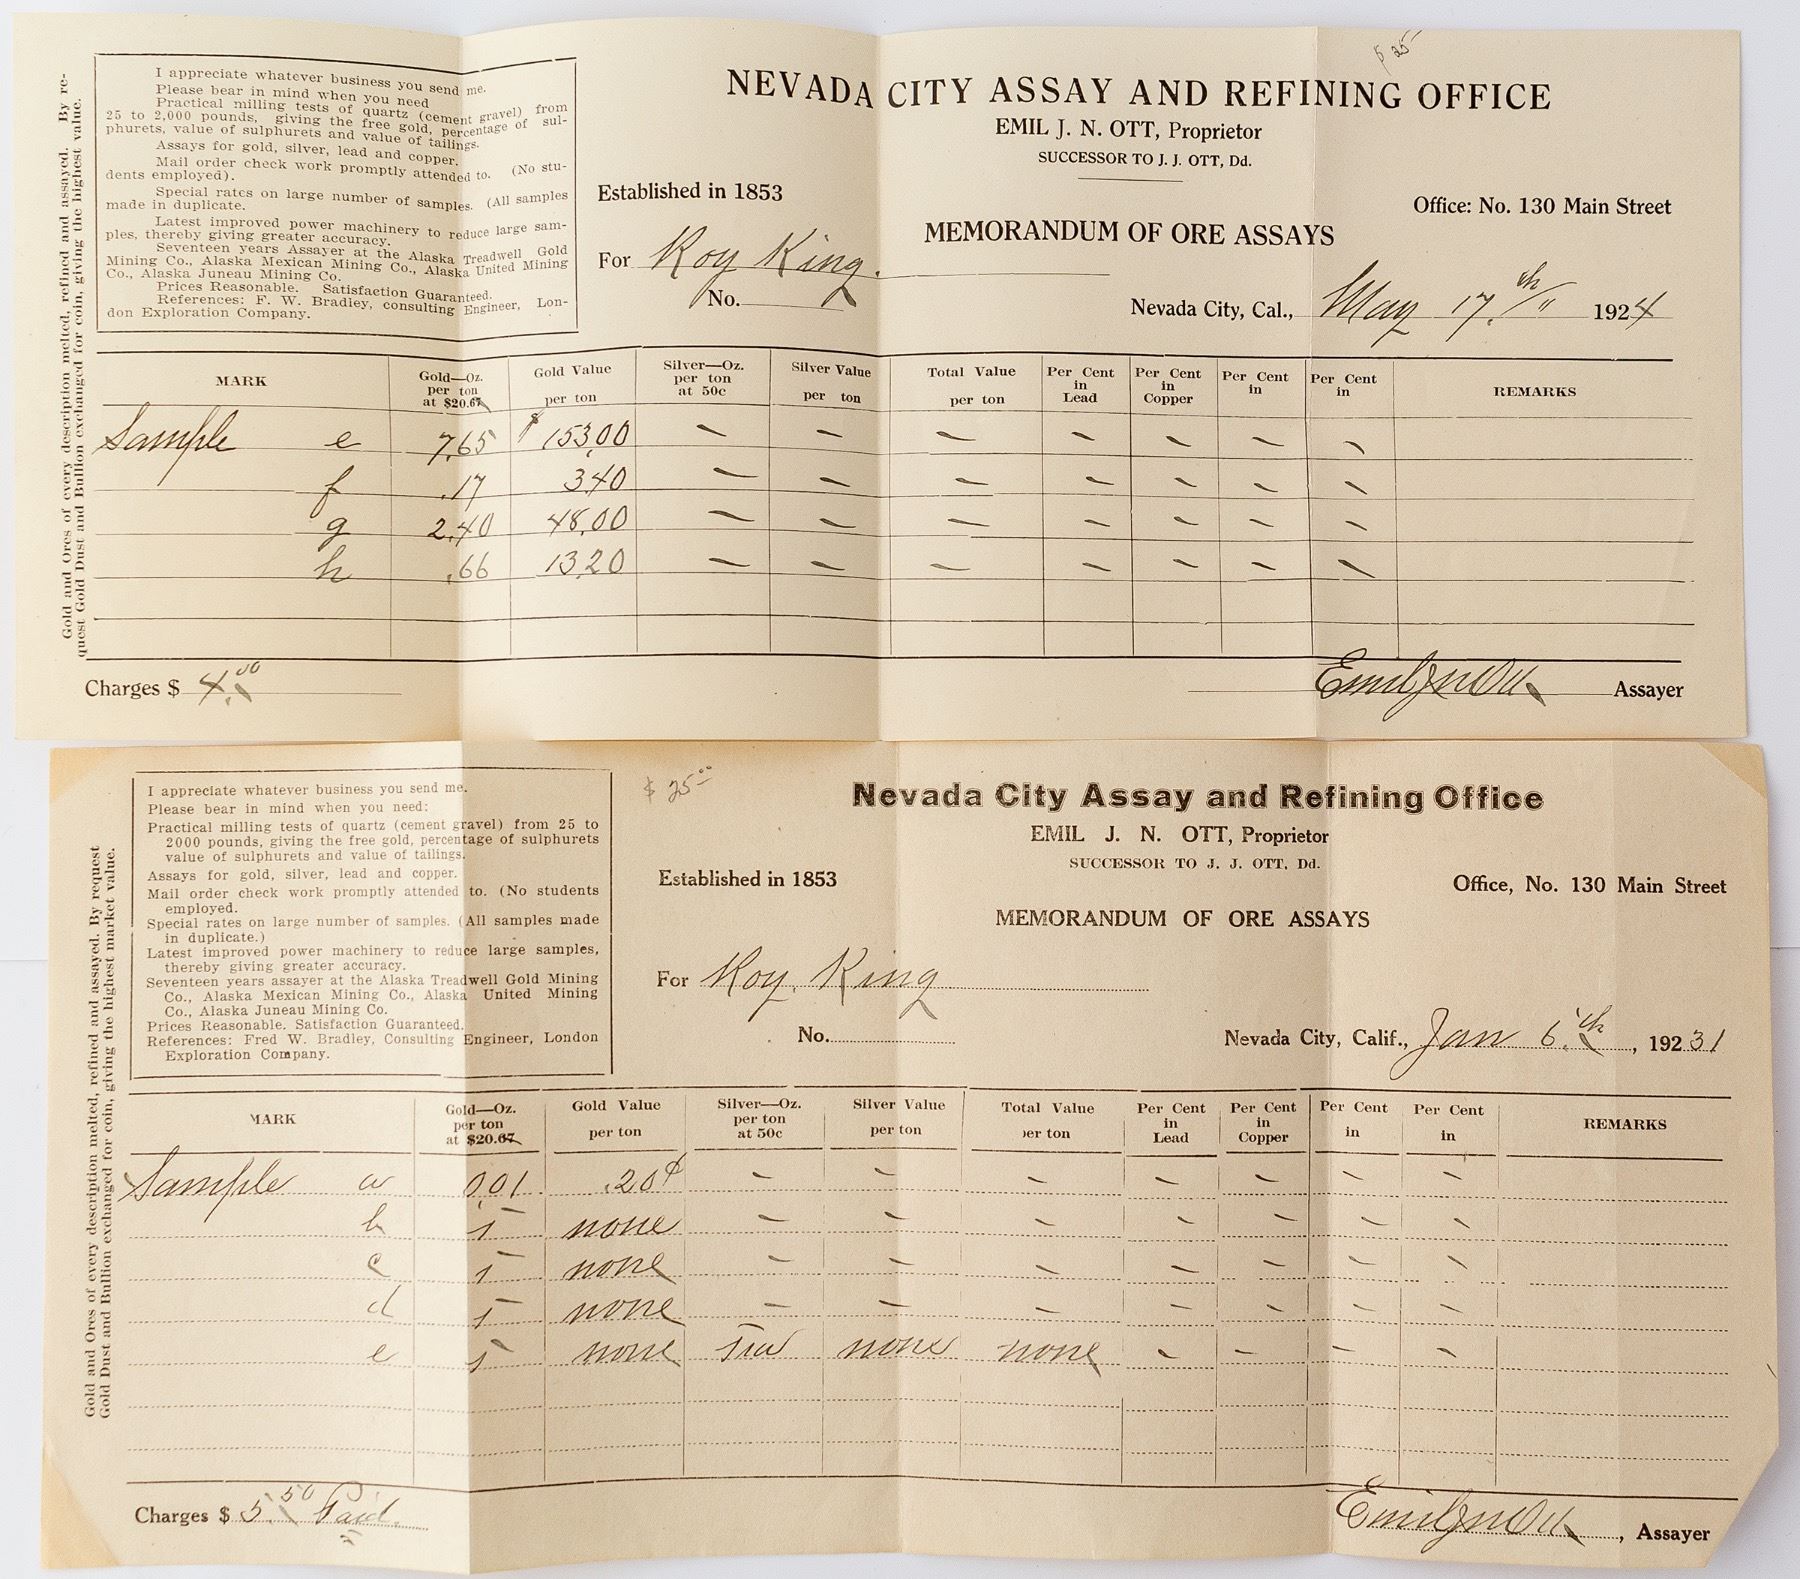 $ 25
I appreciate whatever business you send me.
Please bear in mind when you need
Practical milling tests of quartz (cement gravel) from
25 to 2,000 pounds, giving the free gold, percentage of sul-
phurets, value of sulphurets and value of tailings.
Assays for gold, silver, lead and copper.
Mail order check work promptly attended to. (No stu-
dents employed).
Special rates on large number of samples. (All samples
made in duplicate.
Latest improved power machinery to reduce large sam-
ples, thereby giving greater accuracy.
Seventeen years Assayer at the Alaska Treadwell Gold
Mining Co., Alaska Mexican Mining Co., Alaska United Mining
Co., Alaska Juneau Mining Co.
Prices Reasonable. Satisfaction Guaranteed.
References: F. W. Bradley, consulting Engineer, Lon-
don Exploration Company.
Gold and Ores of every description melted, refined and assayed. By re-
quest Gold Dust and Bullion exchanged for coin, giving the highest value.
NEVADA CITY ASSAY AND REFINING OFFICE
EMIL J. N. OTT, Proprietor
SUCCESSOR TO J. J. OTT, Dd.
Established in 1853
Office: No. 130 Main Street
MEMORANDUM OF ORE ASSAYS
For Roy King.
No.
Nevada City, Cal., May 17th 1924
MARK Gold—Oz. per ton at $20.67 Gold Value per ton Silver—Oz. per ton at 50c Silver Value per ton Total Value per ton Per Cent in Lead Per Cent in Copper Per Cent in Per Cent in REMARKS
Sample e 7.65 $ 153.00 – – – – – – –
f .17 3.40 – – – – – – –
g 2.40 48.00 – – – – – – –
h .66 13.20 – – – – – – –
Charges $ 4.00
Emil J N Ott Assayer
$ 25.00
I appreciate whatever business you send me.
Please bear in mind when you need:
Practical milling tests of quartz (cement gravel) from 25 to
2000 pounds, giving the free gold, percentage of sulphurets
value of sulphurets and value of tailings.
Assays for gold, silver, lead and copper.
Mail order check work promptly attended to. (No students
employed.
Special rates on large number of samples. (All samples made
in duplicate.)
Latest improved power machinery to reduce large samples,
thereby giving greater accuracy.
Seventeen years assayer at the Alaska Treadwell Gold Mining
Co., Alaska Mexican Mining Co., Alaska United Mining
Co., Alaska Juneau Mining Co.
Prices Reasonable. Satisfaction Guaranteed.
References: Fred W. Bradley, Consulting Engineer, London
Exploration Company.
Gold and Ores of every description melted, refined and assayed. By request
Gold Dust and Bullion exchanged for coin, giving the highest market value.
Nevada City Assay and Refining Office
EMIL J. N. OTT, Proprietor
SUCCESSOR TO J. J. OTT, Dd.
Established in 1853
Office, No. 130 Main Street
MEMORANDUM OF ORE ASSAYS
For Roy King
No.
Nevada City, Calif., Jan 6th, 19231
MARK Gold—Oz. per ton at $20.67 Gold Value per ton Silver—Oz. per ton at 50c Silver Value per ton Total Value per ton Per Cent in Lead Per Cent in Copper Per Cent in Per Cent in REMARKS
Sample a 0.01 .20¢ – – – – – – –
b none – – – – – – –
c none – – – – – – –
d none – – – – – – –
e none none none – – – –
Charges $ 5.50 Paid.
Emil J N Ott, Assayer